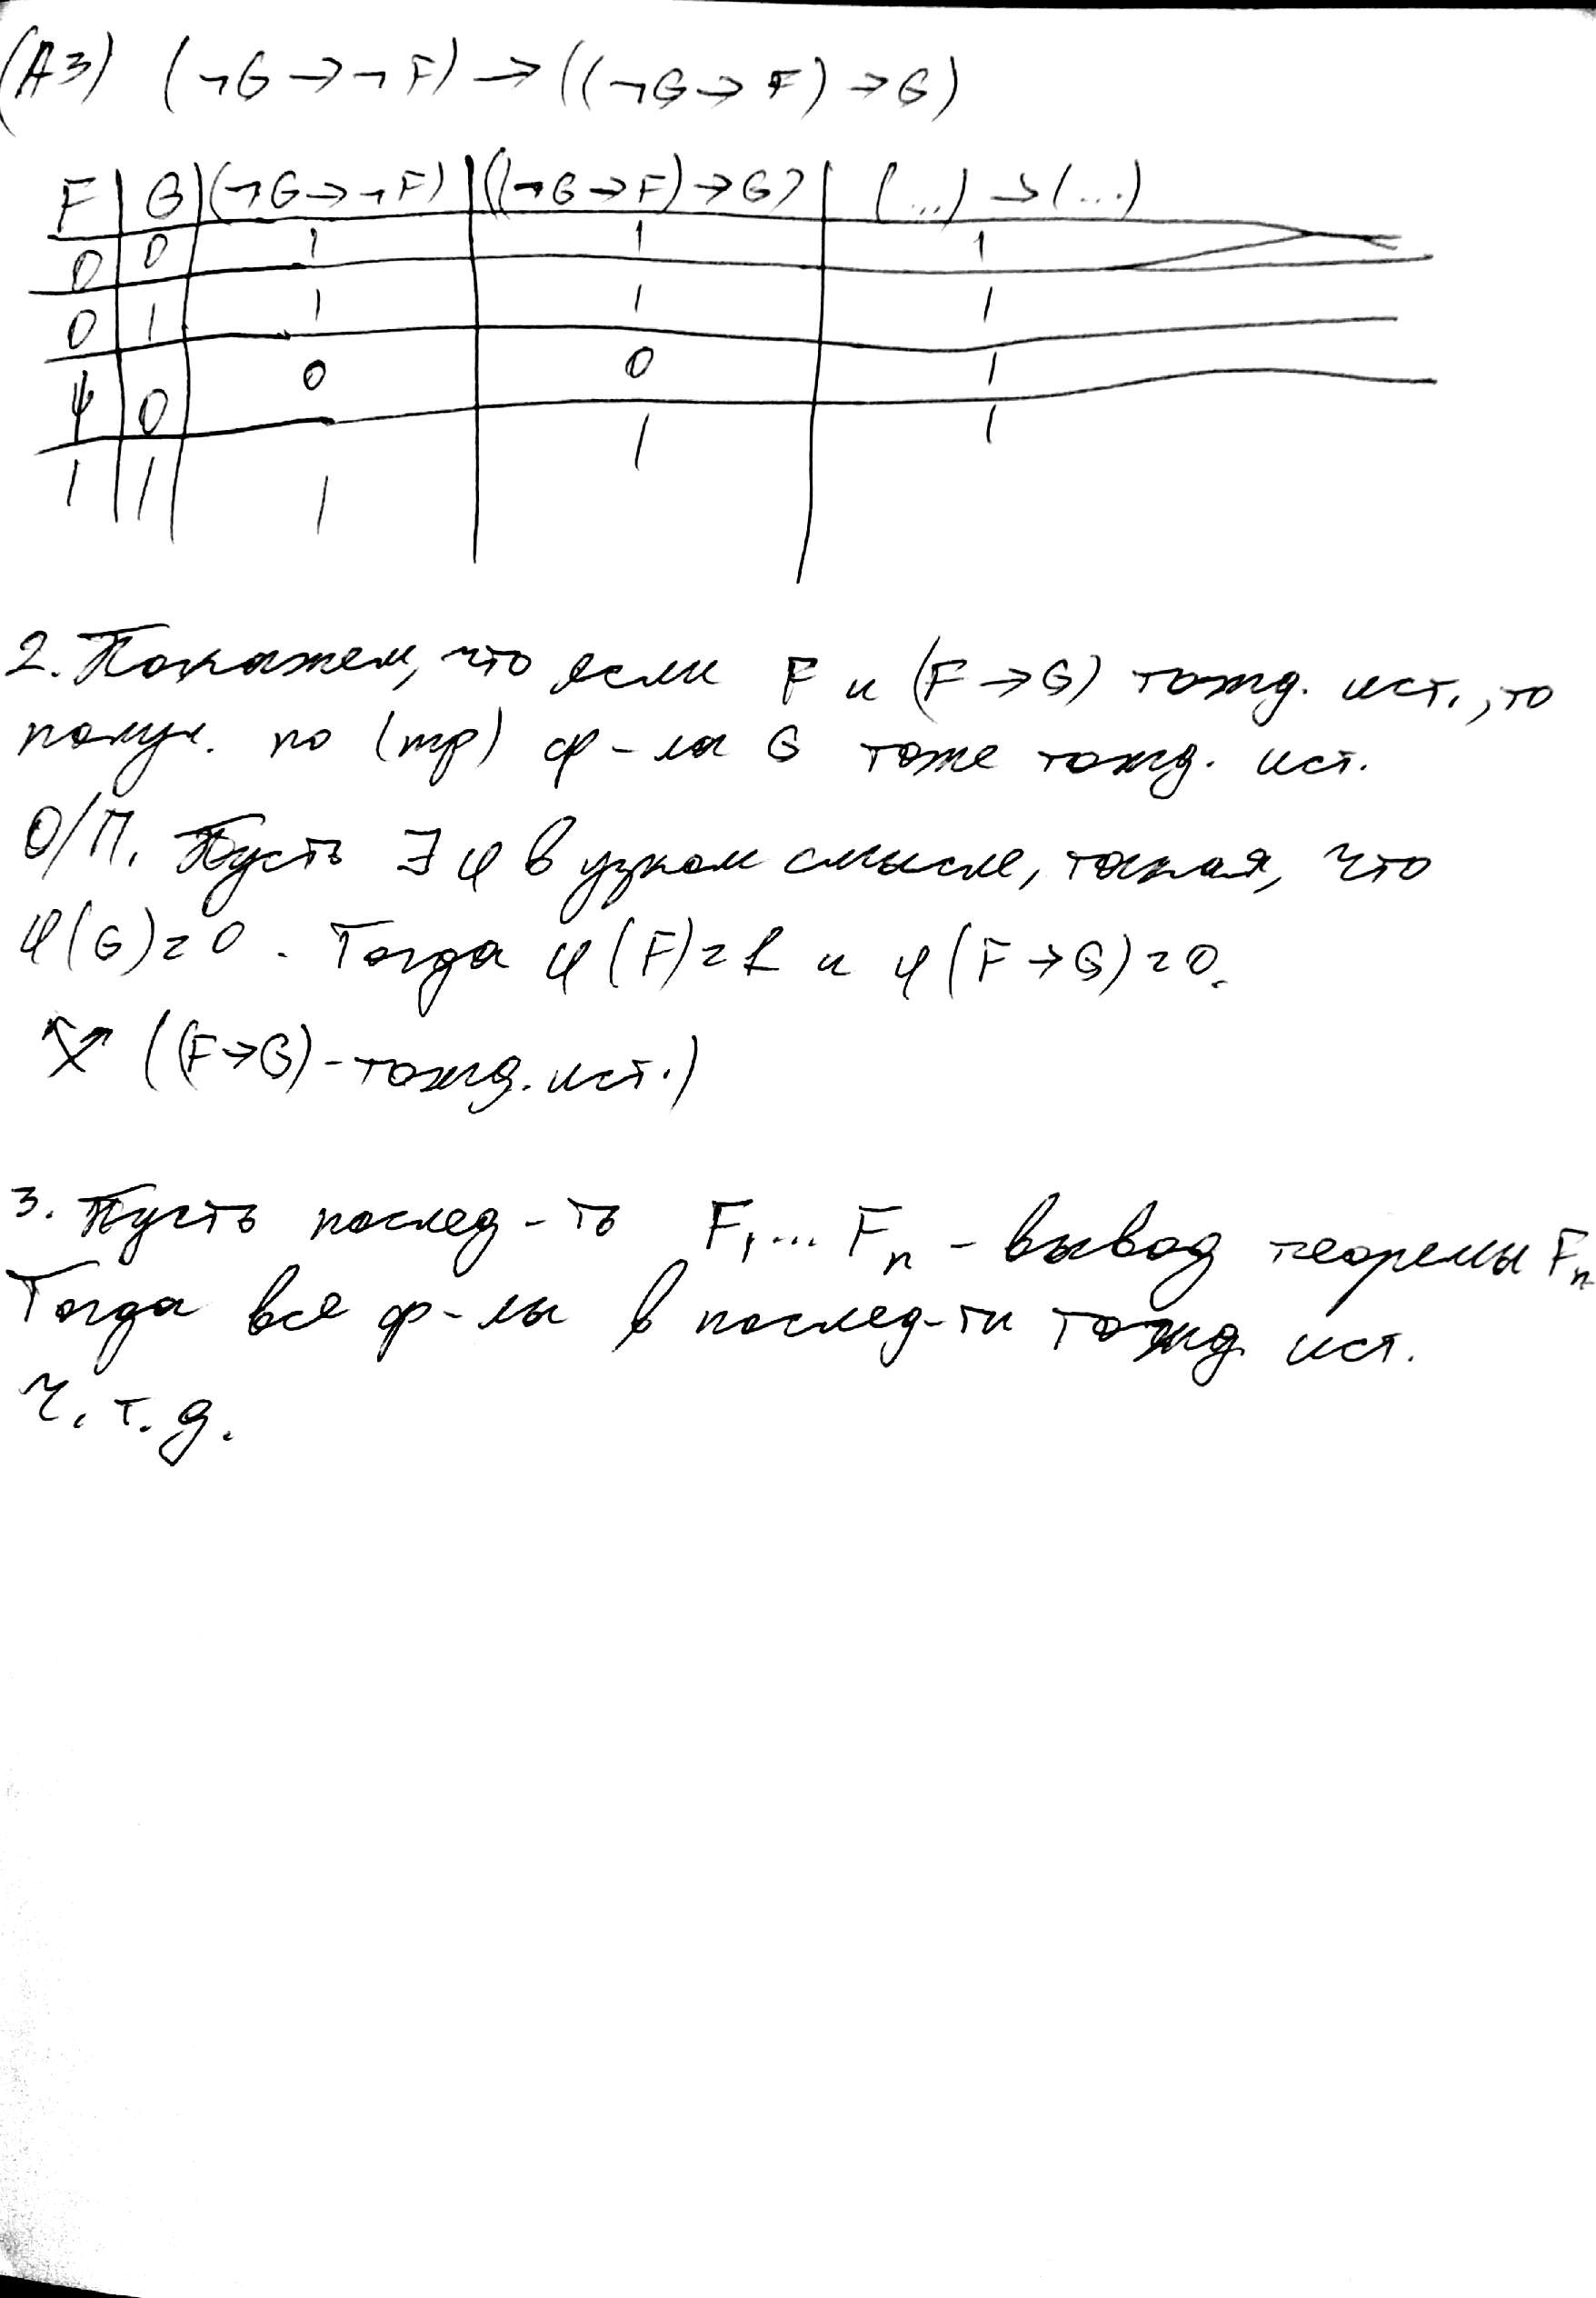 (А3) (¬G → ¬F) → ((¬G → F) → G)
F | G | (¬G → ¬F) | ((¬G → F) → G) | (...) → (...)
0 | 0 | 1 | 1 | 1
0 | 1 | 1 | 1 | 1
ψ | 0 | 0 | 0 | 1
1 | 1 | 1 | 1 | 1
2. Покажем, что если F и (F → G) тожд. ист., то
получ. по (mp) ф-ла G тоже тожд. ист.
О/П. Пусть ∃ φ в узком смысле, такая, что
φ(G) = 0. Тогда φ(F) = 1 и φ(F → G) = 0.
((F → G) - тожд. ист.)
3. Пусть послед-ть F₁ ... Fₙ - вывод теоремы Fₙ
Тогда все ф-лы в послед-ти тожд. ист.
Ч. т. д.